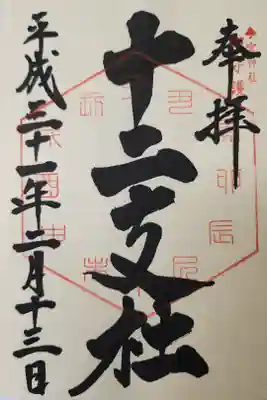 奉拝
十二支社
平成三十一年二月十三日